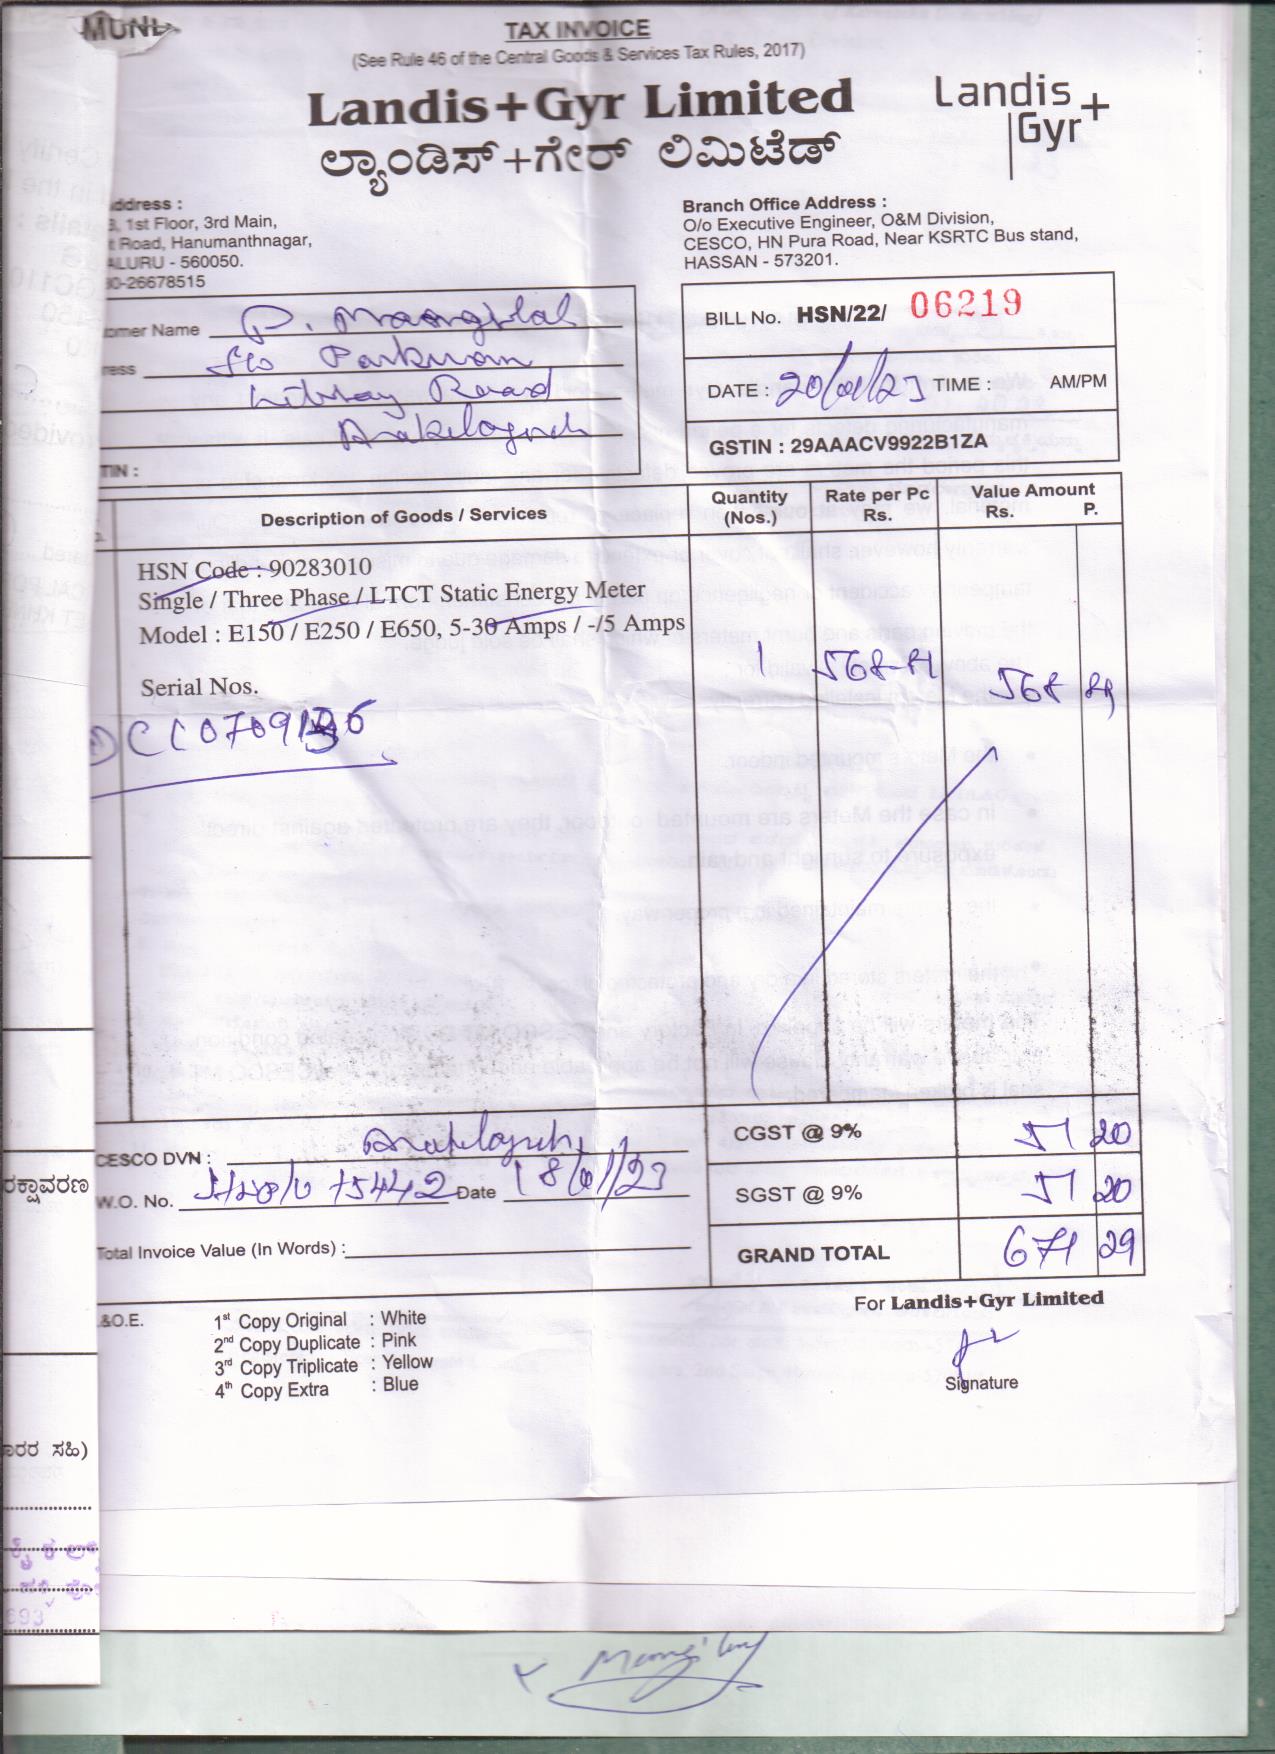 MUNI
TAX INVOICE
(See Rule 46 of the Central Goods & Services Tax Rules, 2017)
Landis+Gyr Limited
ಲ್ಯಾಂಡಿಸ್+ಗೇರ್ ಲಿಮಿಟೆಡ್
Landis
Gyr+
ddress :
, 1st Floor, 3rd Main,
t Road, Hanumanthnagar,
ALURU - 560050.
0-26678515
Branch Office Address :
O/o Executive Engineer, O&M Division,
CESCO, HN Pura Road, Near KSRTC Bus stand,
HASSAN - 573201.
omer Name P.
ress S/o
Road
TIN :
BILL No. HSN/22/ 06219
DATE : 20/01/23 TIME : AM/PM
GSTIN : 29AAACV9922B1ZA
Description of Goods / Services
Quantity (Nos.)
Rate per Pc Rs.
Value Amount Rs. P.
HSN Code : 90283010
Single / Three Phase / LTCT Static Energy Meter
Model : E150 / E250 / E650, 5-30 Amps / -/5 Amps
1 568-89 568 89
Serial Nos.
CESCO DVN :
W.O. No. Date 18/01/23
Total Invoice Value (In Words) :
CGST @ 9% 51 20
SGST @ 9% 51 20
GRAND TOTAL 671 29
.&O.E.
1st Copy Original : White
2nd Copy Duplicate : Pink
3rd Copy Triplicate : Yellow
4th Copy Extra : Blue
For Landis+Gyr Limited
Signature
ರಕ್ಷಾವರಣ
ಾರರ ಸಹಿ)
693